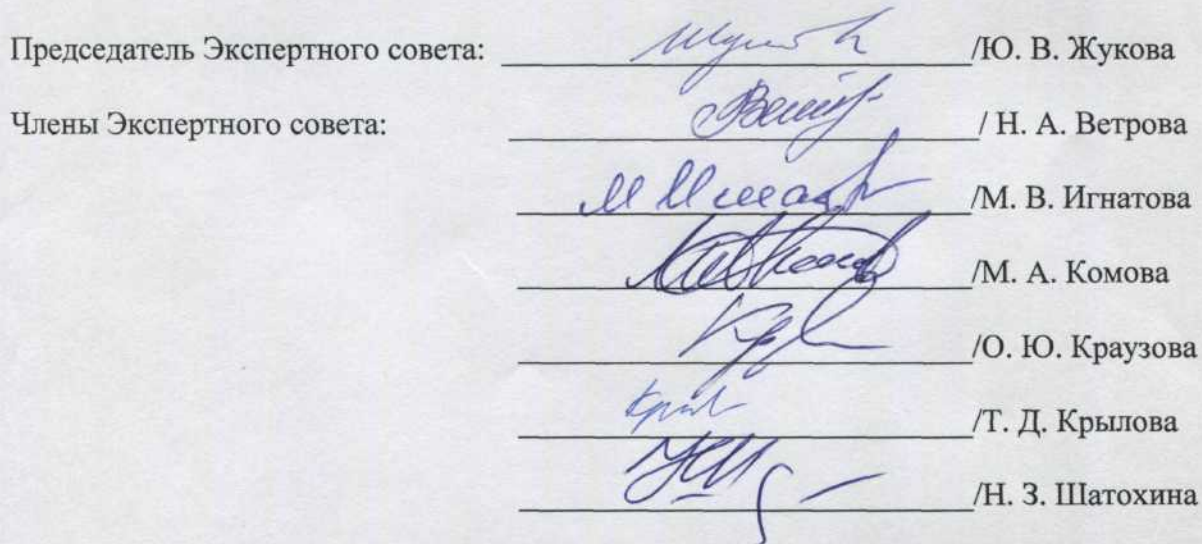 Председатель Экспертного совета: /Ю. В. Жукова
Члены Экспертного совета: / Н. А. Ветрова
/М. В. Игнатова
/М. А. Комова
/О. Ю. Краузова
/Т. Д. Крылова
/Н. З. Шатохина